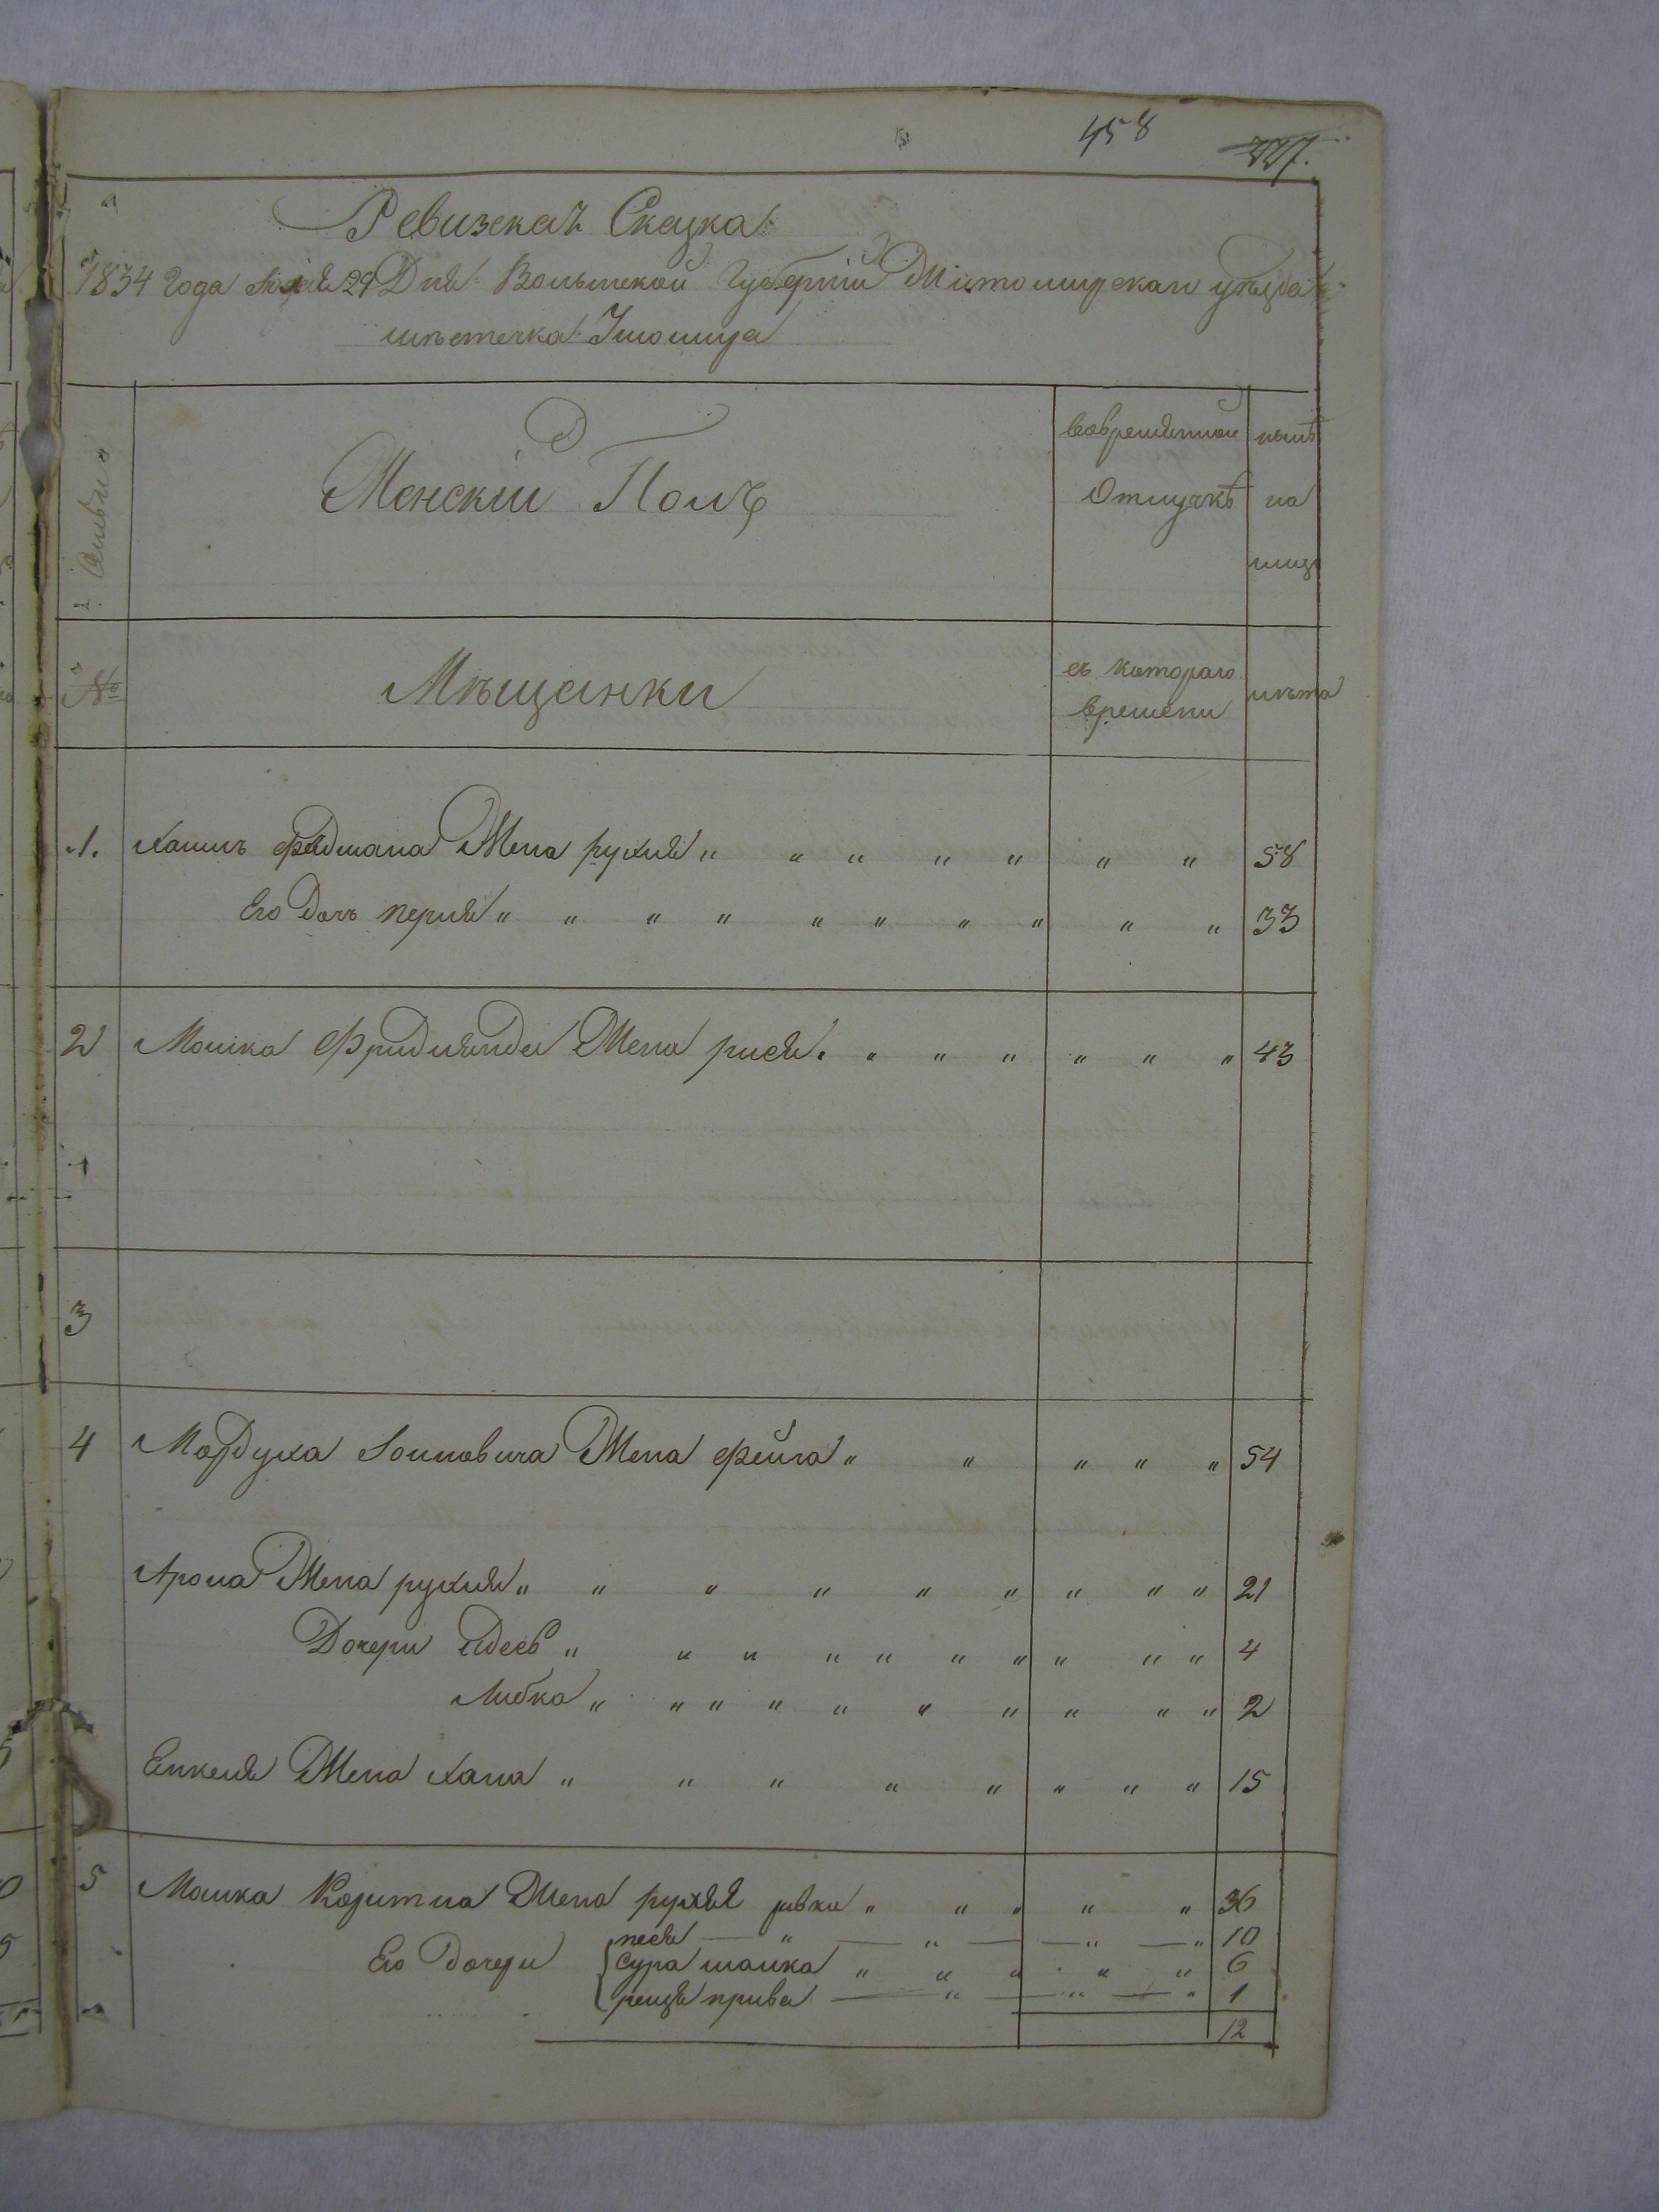 458
Ревизская Сказка
1834 Года Маія 29 Дня Волынской Губерніи Житомирскаго уѣзда
мѣстечка Ушомира
Женскій Полъ
Вовременной
Отлучкѣ
нынѣ
на
лицо
Семьи
№
Мѣщанки
съ котораго
времени
лѣта
1. Жена рухля " " " " " " " 58
Его Дочь перля " " " " " " " " " " 33
2 Мошка Фридлянда Жена рися " " " " " " " 43
3
4 Мордуха Жена фейга " " " " " 54
Арона Жена рухля " " " " " " " " " 21
Дочери " " " " " " " " " " 4
Либка " " " " " " " " " " 2
Енкеля Жена хана " " " " " " " " 15
5 Мошка Коритна Жена рухля ривка " " " " " 36
Его Дочери
песя " " " " 10
сура малка " " " " " 6
" " " 1
12